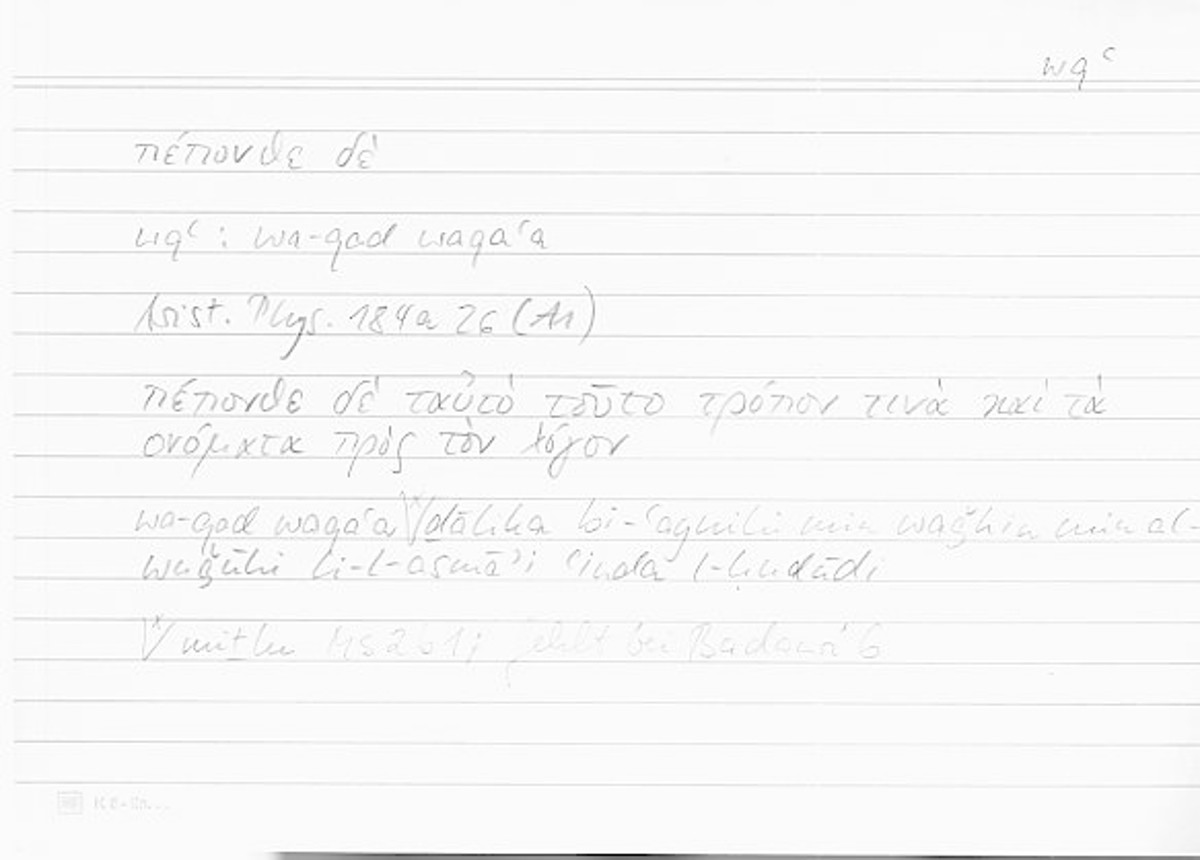 wqʿ
πέπονθε δέ
wqʿ : wa-qad waqaʿa
Arist. Phys. 184a 26 (A1)
πέπονθε δὲ ταὐτὸ τοῦτο τρόπον τινὰ καὶ τὰ
ονόματα πρὸς τὸν λόγον
wa-qad waqaʿa ḏālika bi-ʿaynihi min waǧhin min al-
wuǧūhi li-l-asmāʾi ʿinda l-ḥudūdi
miṯlu fehlt bei Badawī 6